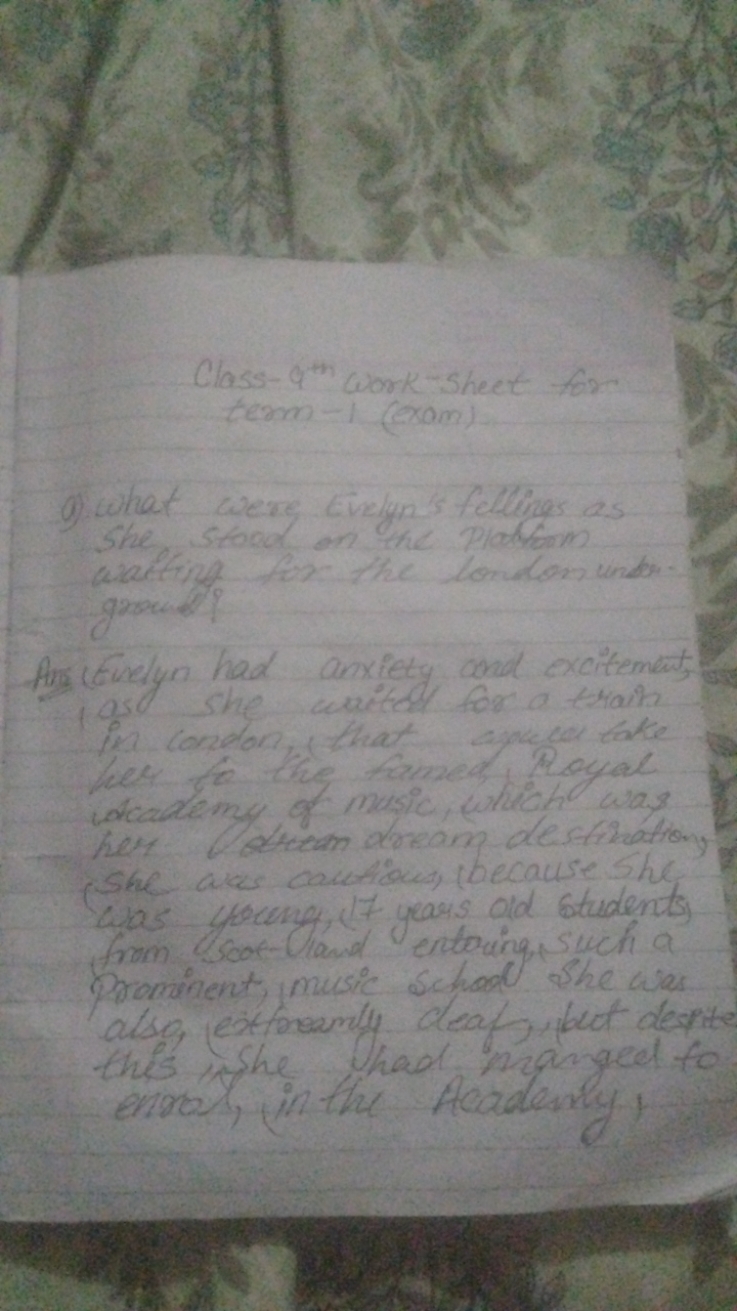 Class-9th Work-Sheet for
term-1 (exam)
Q) What were Evelyn's fellings as
She stood on the Platform
waiting for the london under-
ground?
Ans (Evelyn had anxiety and excitement,
as she waited for a train
in london, that take
her to the famed, Royal
Academy of music, which was
her dream destination,
She was cautious, because She
was young, 17 years old students,
from Scot-land entering, such a
Prominent, music School She was
also, deaf, but despite
this, She had manged to
in the Academy,